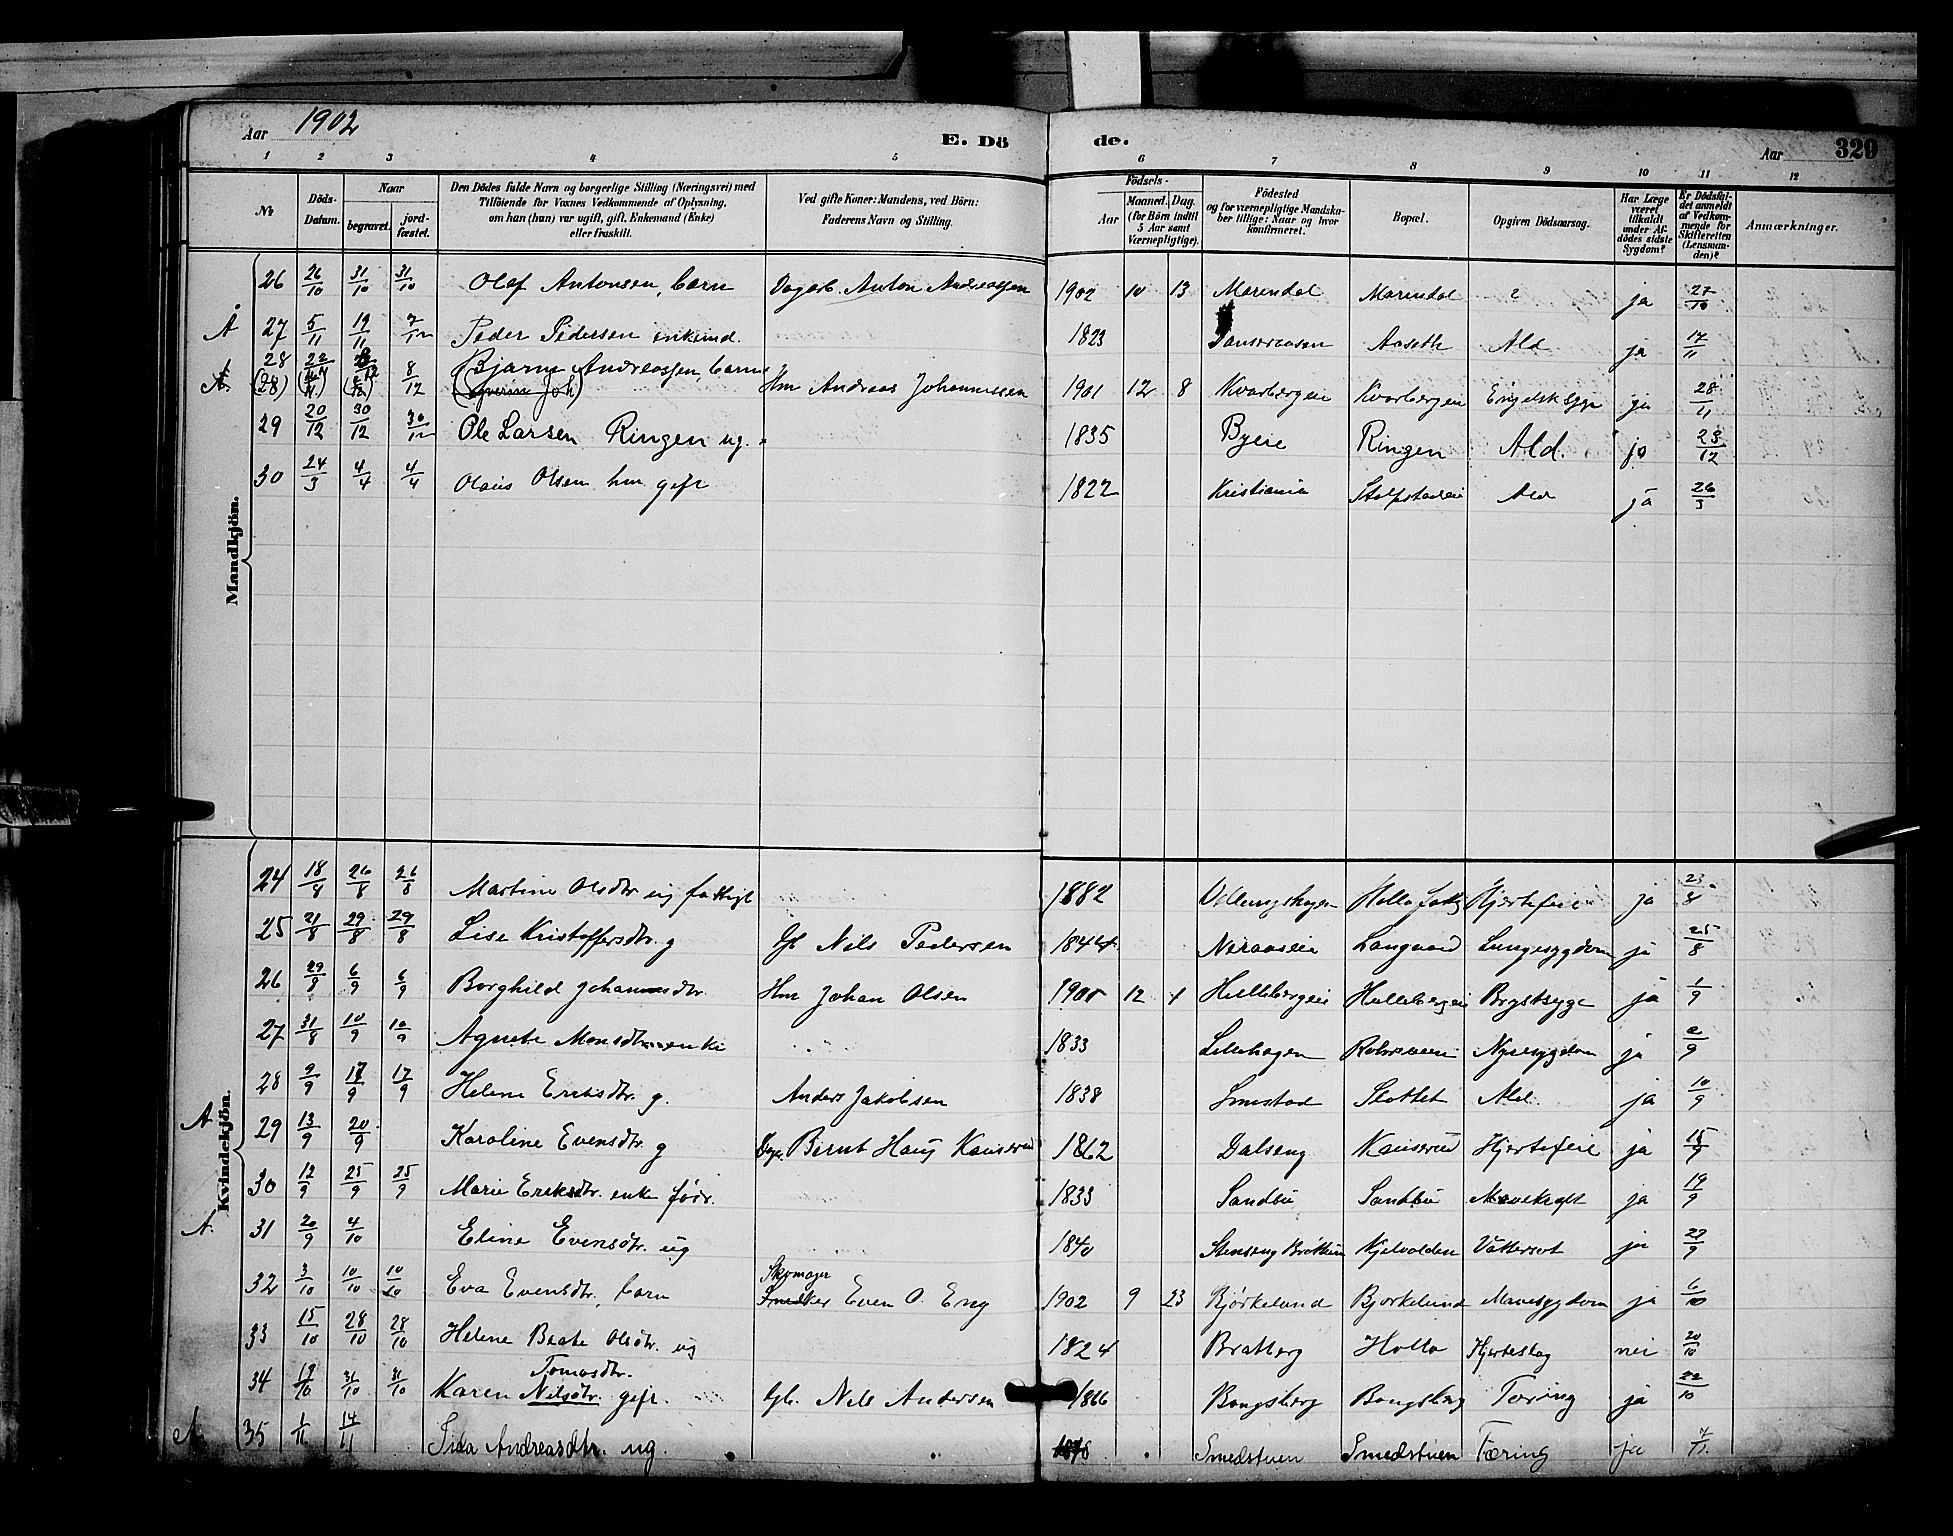 Aar 1902 E. Dö de. Aar 329
1 2 3 4 5 6 7 8 9 10 11 12
№ Döds-Datum. Naar begravet. jord-fæstet. Den Dödes fulde Navn og borgerlige Stilling (Næringsvei) med Tilföiende for Voxnes Vedkommende af Oplysning, om han (hun) var ugift, gift, Enkemand (Enke) eller fraskilt. Ved gifte Koner: Mandens, ved Börn: Faderens Navn og Stilling. Födsels- Aar Maaned. Dag. (for Börn indtil 5 Aar samt Værnepligtige). Födested og for værnepligtige Mandskaber tillige: Naar og hvor konfirmeret. Bopæl. Opgiven Dödsaarsag. Har Læge været tilkaldt under Afdödes sidste Sygdom? Er Dödsfaldet anmeldt af Vedkommende for Skifteretten (Lensmanden)? Anmærkninger.
Mandkjön.
26 26/10 31/10 31/10 Olaf Antonsen, barn Dagarb. Anton Andreassen 1902 10 13 Marendal Marendal ? ja 27/10
A 27 5/11 19/11 7/12 Peder Pedersen enkemd. 1823 Aaseth Ald ja 17/11
28 22/11 Bjarne Andreassen, barn
A. (28) 8/12 Hm Andreas Johannessen 1901 12 8 Kvarbergeie Kvarbergeie Engelsk syge ja 28/11
29 20/12 30/12 30/12 Ole Larsen Ringen ug. 1835 Byeie Ringen Ald. ja 23/12
30 24/3 4/4 4/4 Olaus Olsen hm gift 1822 Kristiania Ald ja 26/3
Kvindekjön.
24 18/8 26/8 26/8 Martine Olsdtr. ug fattigl 1882 Hjertefeil ja 23/8
25 21/8 29/8 29/8 Lise Kristoffersdtr. g Gf. Nils Pedersen 1844 Lungesygdom ja 25/8
26 29/8 6/9 6/9 Borghild Johannsdtr. Hm Johan Olsen 12 Hullebergeie Hullebergeie Brystsyge ja 1/9
27 31/8 10/9 10/9 Agnete Monsdtr. enke 1833 Lillehagen Nyresygdom ja 2/9
28 9/9 17/9 17/9 Helene Eriksdtr. g. Anders Jakobsen 1838 Smestad Slottet Ald. ja 10/9
A 29 13/9 20/9 Karoline Evensdtr. g Bernt Haug Kauserud 1862 Dalseng Kauserud Hjertefeil ja 15/9
30 12/9 25/9 25/9 Marie Eriksdtr. enke 1833 Sandbu Sandbu Mavekræft ja 19/9
A. 31 20/9 4/10 Eline Evensdtr. ug 1840 Stenseng Brøttum Kjelvolden Vattersot ja 22/9
32 3/10 10/10 10/10 Eva Evensdtr., barn Skomager Even O. Eng 1902 9 23 Bjørkelund Bjørkelund Mavesygdom ja 6/10
33 15/10 28/10 28/10 Helene Beate Olsdtr. ug 1824 Bratberg Holto Hjerteslag nei 20/10
34 17/10 31/10 31/10 Karen Nilsdtr. Tomasdtr. gift. Gf. Nils Andersen 1866 Bongsberg Bongsberg Tæring ja 22/10
A 35 1/11 14/11 Andreasdtr. ug. Smedstuen Smedstuen Tæring ja